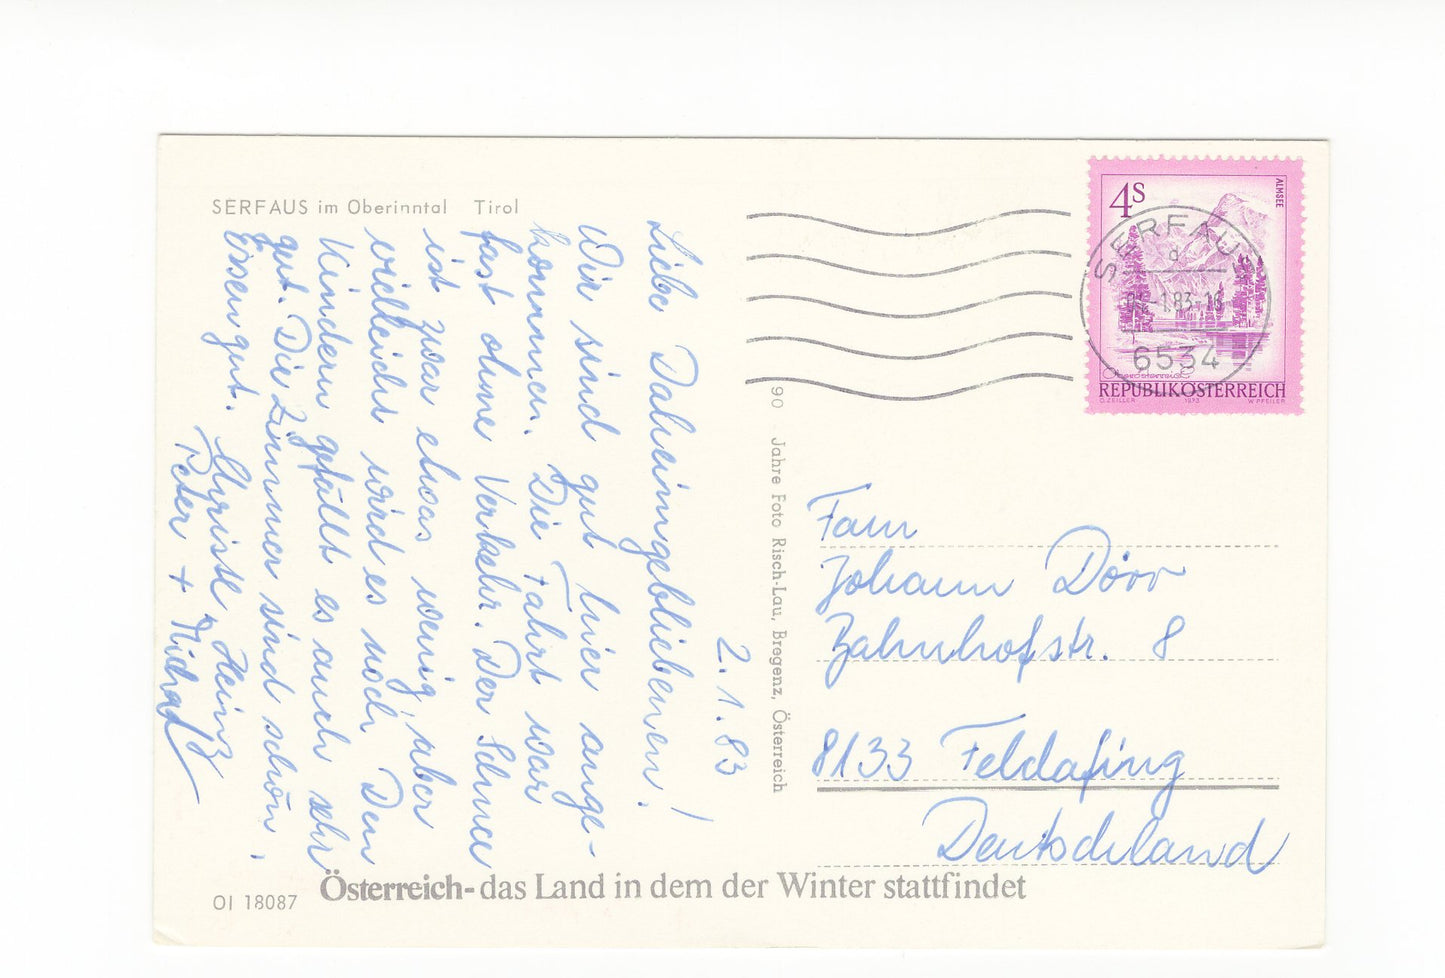 SERFAUS im Oberinntal Tirol
2.1.83
Liebe Daheimgebliebenen!
Wir sind gut hier ange-
kommen. Die Fahrt war
fast ohne Verkehr. Der Schnee
ist zwar etwas wenig, aber
vielleicht wird es noch. Den
Kindern gefällt es auch sehr
gut. Die Zimmer sind schön.
Essen gut.
Heinz
Peter +
90 Jahre Foto Risch-Lau, Bregenz, Österreich
4S
ALMSEE
SERFAUS
6534
REPUBLIK ÖSTERREICH
O.ZEILLER 1973 W.PFEILER
Fam
Johann Dörr
Bahnhofstr. 8
8133 Feldafing
Deutschland
OI 18087
Österreich- das Land in dem der Winter stattfindet